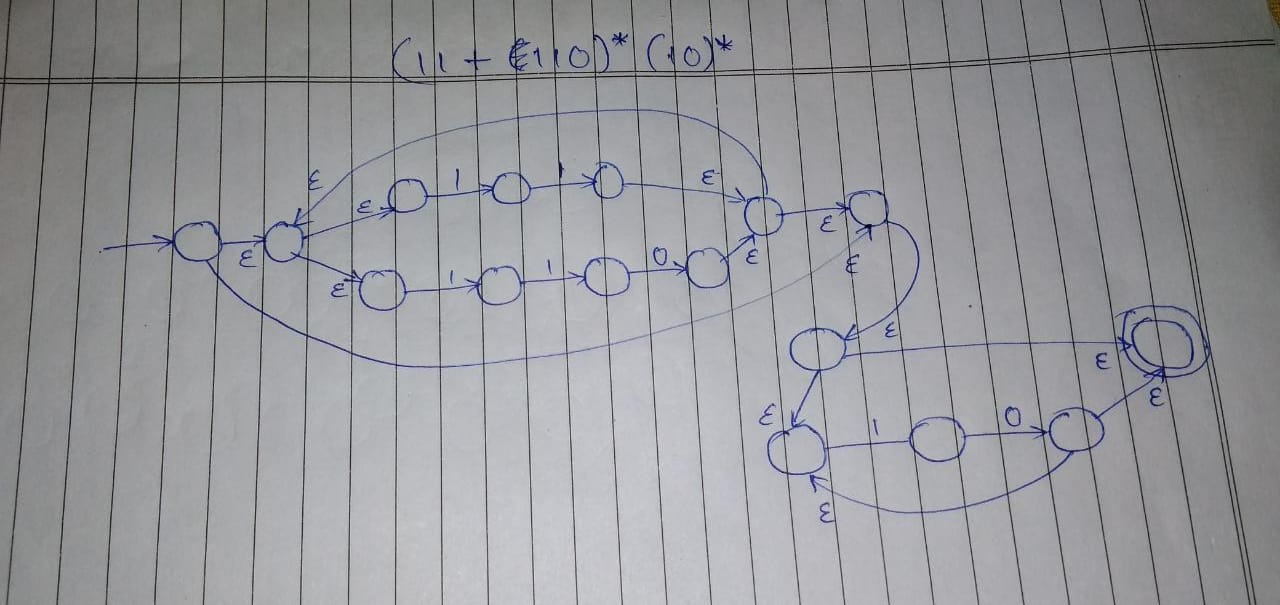 (11 + 110)* (10)*
ε
ε 1 1 ε
ε ε ε
ε 1 1 0 ε
ε
ε
ε
ε ε
1 0
ε